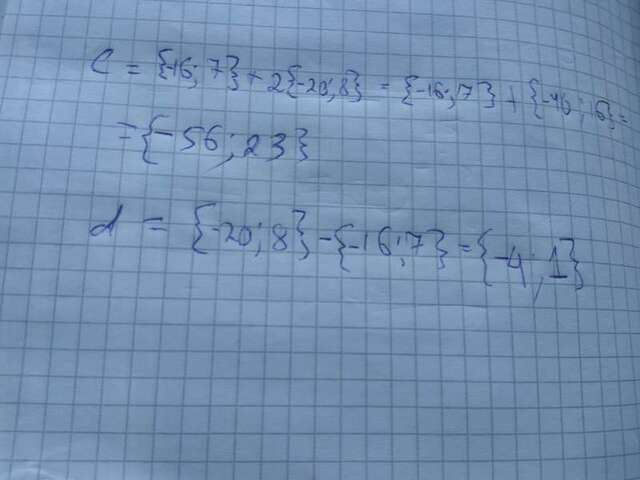 c = {-16; 7} + 2{-20; 8} = {-16; 7} + {-40; 16} =
= {-56; 23}
d = {-20; 8} - {-16; 7} = {-4; 1}